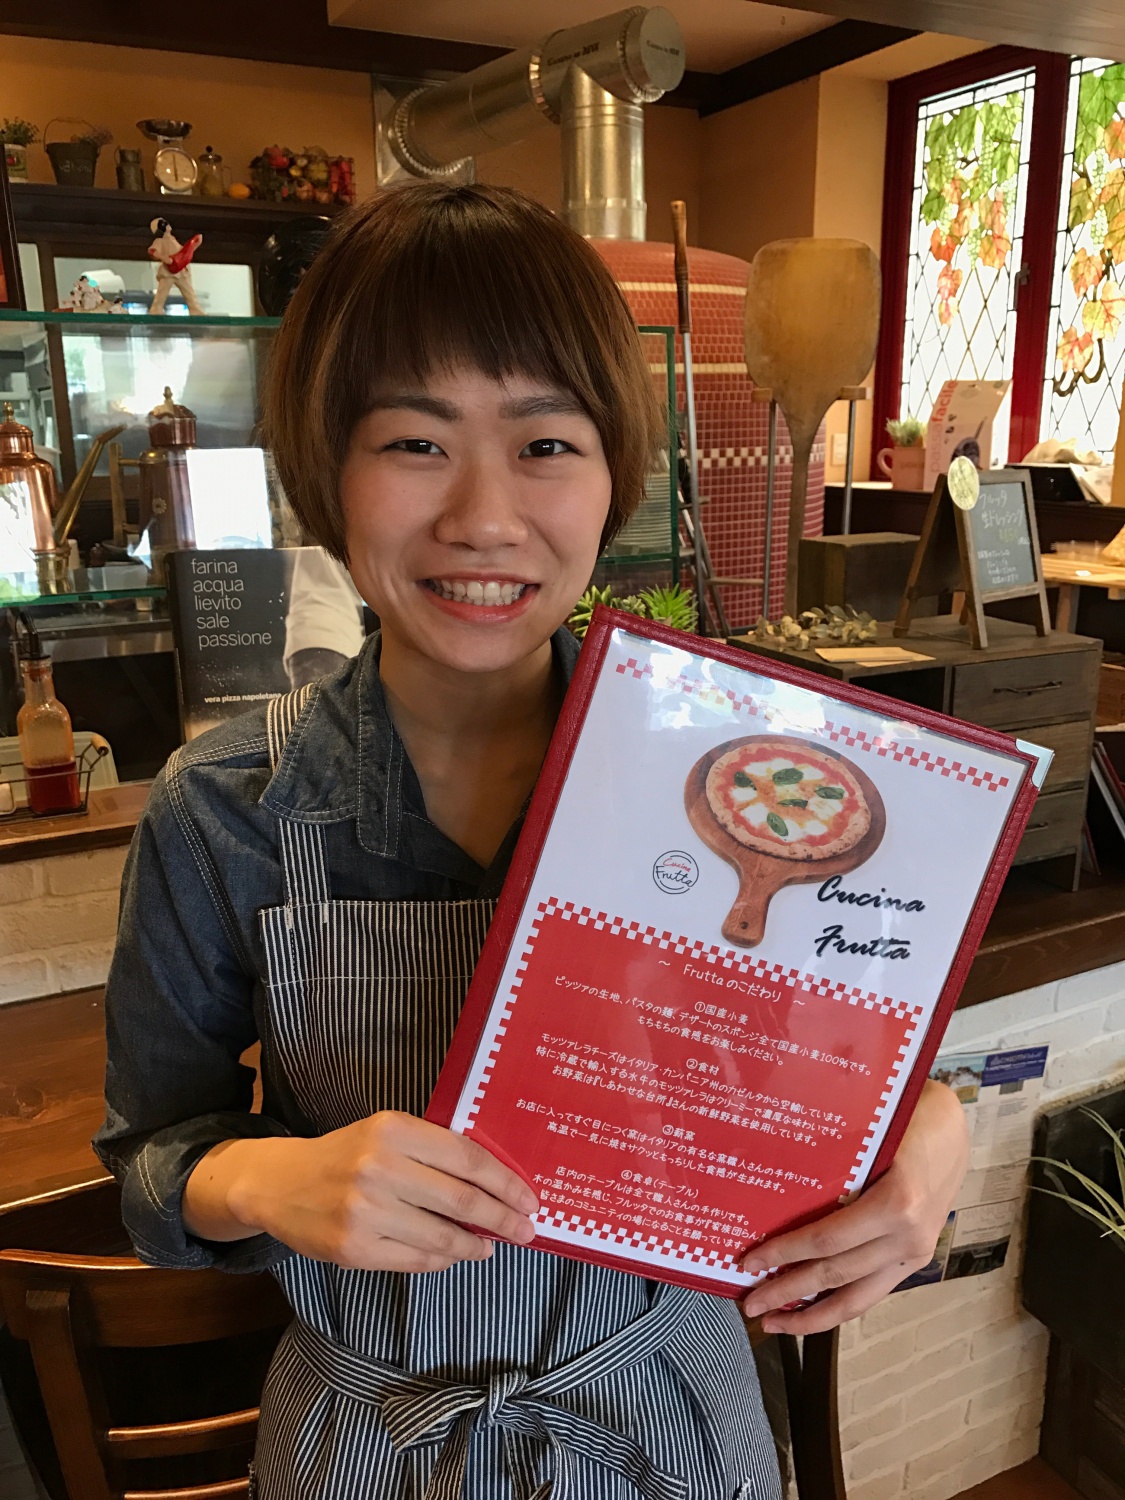 farina
acqua
lievito
sale
passione
vera pizza napoletana
Cucina
Frutta
Cucina
Frutta
～ Fruttaのこだわり ～
①国産小麦
ピッツァの生地、パスタの麺、デザートのスポンジ全て国産小麦100％です。
もちもちの食感をお楽しみください。
②食材
モッツァレラチーズはイタリア・カンパニア州のカゼルタから空輸しています。
特に冷蔵で輸入する水牛のモッツァレラはクリーミーで濃厚な味わいです。
お野菜は『しあわせな台所』さんの新鮮野菜を使用しています。
③薪窯
お店に入ってすぐ目につく窯はイタリアの有名な窯職人さんの手作りです。
高温で一気に焼きサクッともっちりした食感が生まれます。
④食卓（テーブル）
店内のテーブルは全て職人さんの手作りです。
木の温かみを感じ、フルッタでのお食事が『家族団らん』
皆さまのコミュニティの場になることを願っています。
facile
フルッタ
生ドレッシング